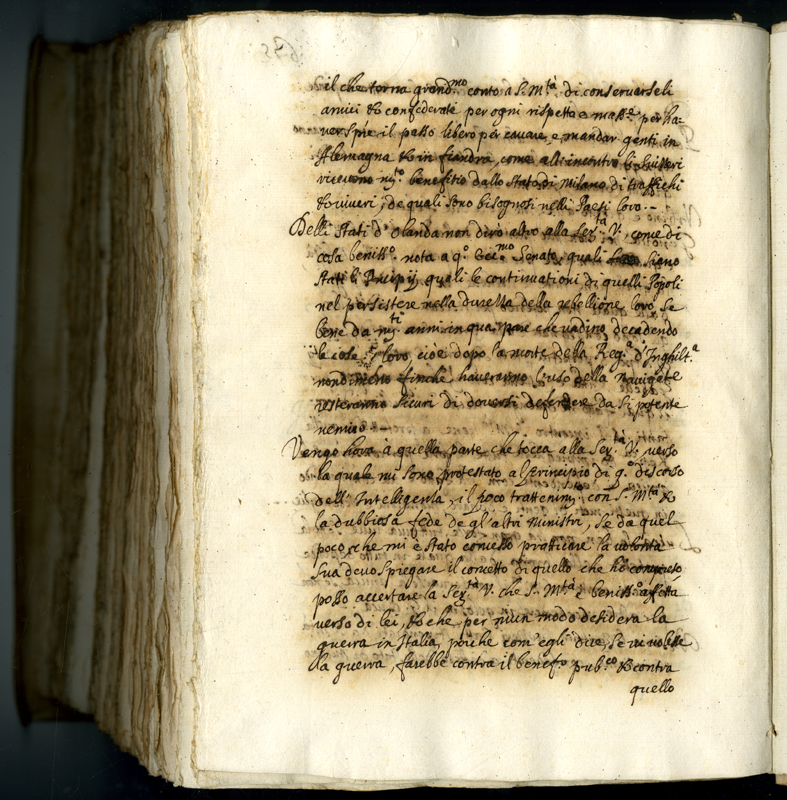 il che torna grand.mo conto a S. M.tà di conseruarseli
amici & confederati per ogni rispetto e mass.e per ha-
uer spre il passo libero per cauare, e mandar genti in
Alemagna & in fiandra, come all'incontro li Suizzeri
riceuono m.to benefitio dallo Stato di Milano di traffichi
& uiueri, de quali sono bisognosi nelli Paesi loro.
Delli Stati d'Olanda non dirò altro alla Ser.tà V., come di
cosa beniss.o nota a q.o Ecc.mo Senato, quali siano
stati li Principij, quali le continuationi di quelli Popoli
nel persistere nella durezza della rebellione loro, se
bene da m.ti anni in qua pare che uadino decadendo
le cose loro, cioè dopo la morte della Reg.a d'Inghilt.a
nondimeno finche haueranno l'uso della nauig.ne
resteranno sicuri di douersi defendere da si potente
nemico.
Vengo hora à quella parte che tocca alla Ser.tà V. uerso
la quale mi sono protestato al Principio di q.o discorso
dell'Intelligenza, il poco trattenim.to con S. M.tà &
la dubbiosa fede de gl'altri ministri, se da quel
poco che mi è stato concesso pratticare la uolontà
sua deuo spiegare il concetto di quello che hò compreso
posso accertare la Ser.tà V. che S. M.tà è beniss.o affetta
uerso di lei, & che per niun modo desidera la
guerra in Italia, poiche com'egli dice, se ui uolesse
la guerra, farebbe contra il benef.o pub.co & contra
quello